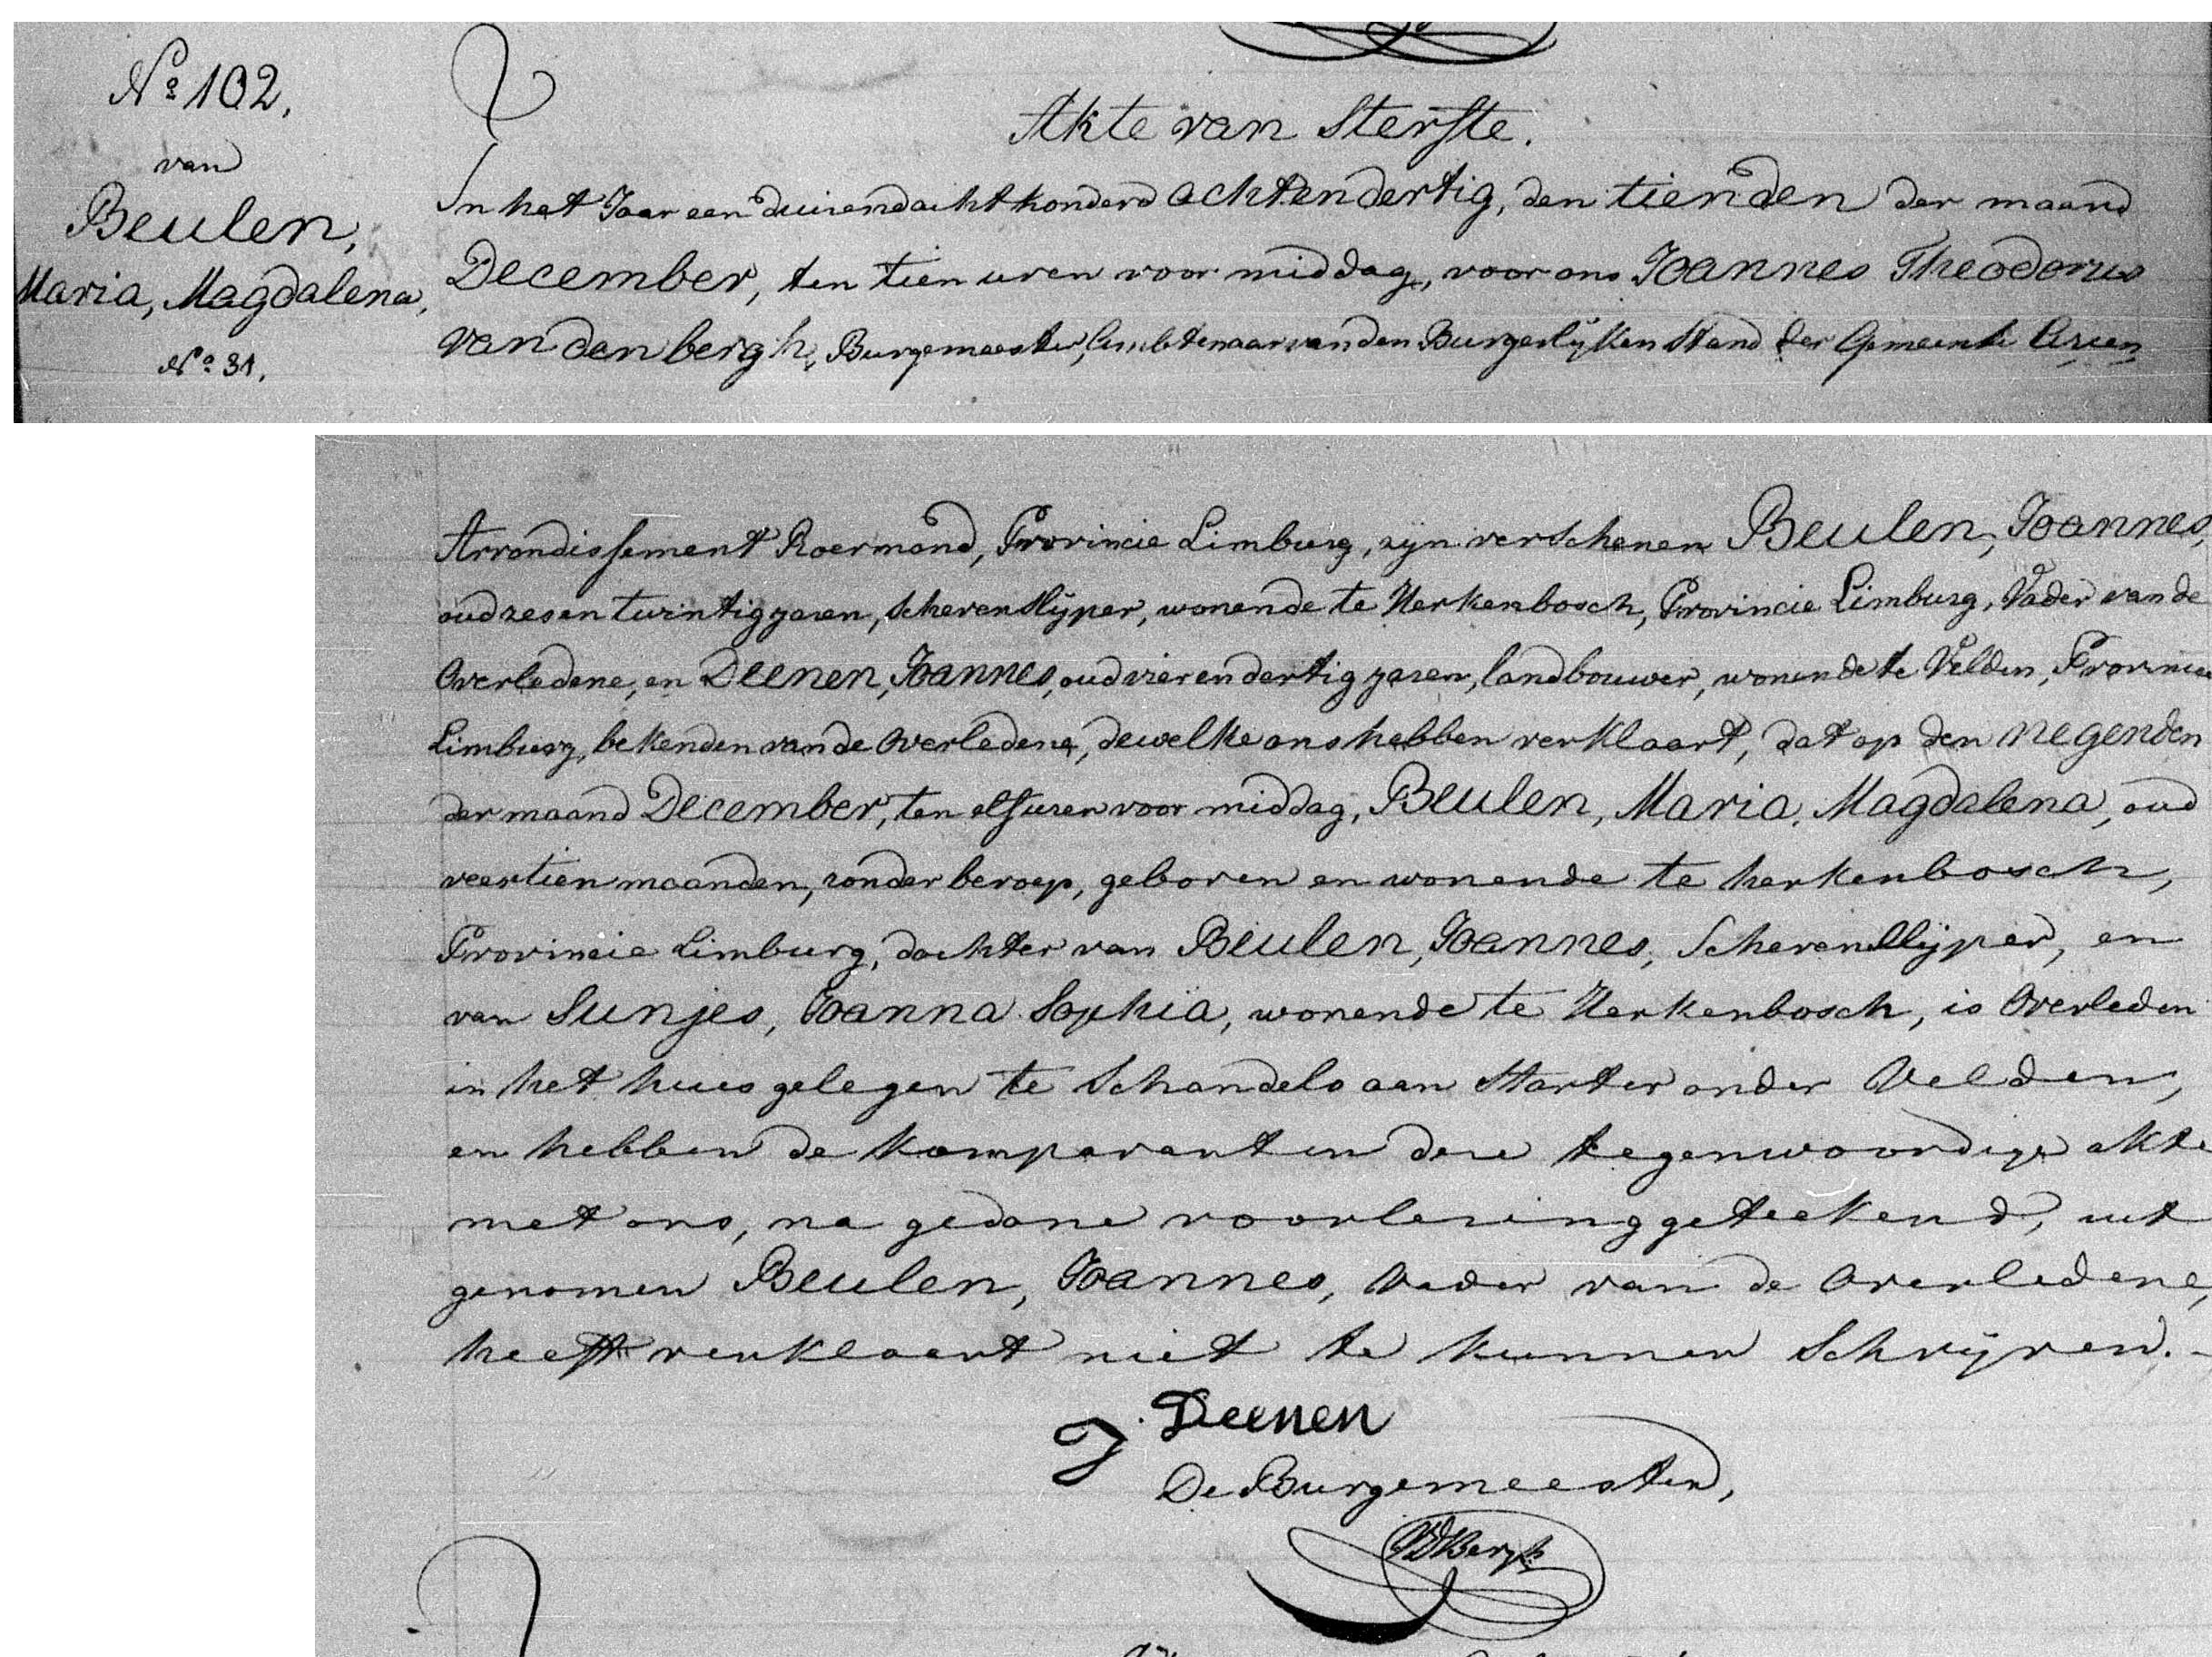 Nº 102.
van
Beulen,
Maria, Magdalena,
Nº 31.
Akte van Sterfte.
In het Jaar een duizendachthonderd achtendertig, den tienden der maand
December, ten tien uren voor middag, voor ons Joannes Theodorus
van den bergh, Burgemeester, Ambtenaar van den Burgerlyken Stand der Gemeente Arcen
Arrondissement Roermond, Provincie Limburg, zyn verschenen Beulen, Joannes,
oud zesentwintig jaren, scherenslyper, wonende te Herkenbosch, Provincie Limburg, Vader van de
Overledene, en Deenen, Joannes, oud vierendertig jaren, landbouwer, wonende te Velden, Provincie
Limburg, bekenden van de Overledene, dewelke ons hebben verklaart, dat op den negenden
der maand December, ten elf uren voor middag, Beulen, Maria, Magdalena, oud
veertien maanden, zonder beroep, geboren en wonende te herkenbosch,
Provincie Limburg, dochter van Beulen, Joannes, Scherenslyper, en
van Sunjes, Joanna Sophia, wonende te Herkenbosch, is Overleden
in het huis gelegen te Schandelo aan Starter onder Velden,
en hebben de komparanten deze tegenwoordige akte
met ons, na gedane voorlezing geteekend, uit
genomen Beulen, Joannes, Vader van de Overledene,
heeft verklaart niet te kunnen Schryven. -
J. Deenen
De Burgemeester,
VDBergh